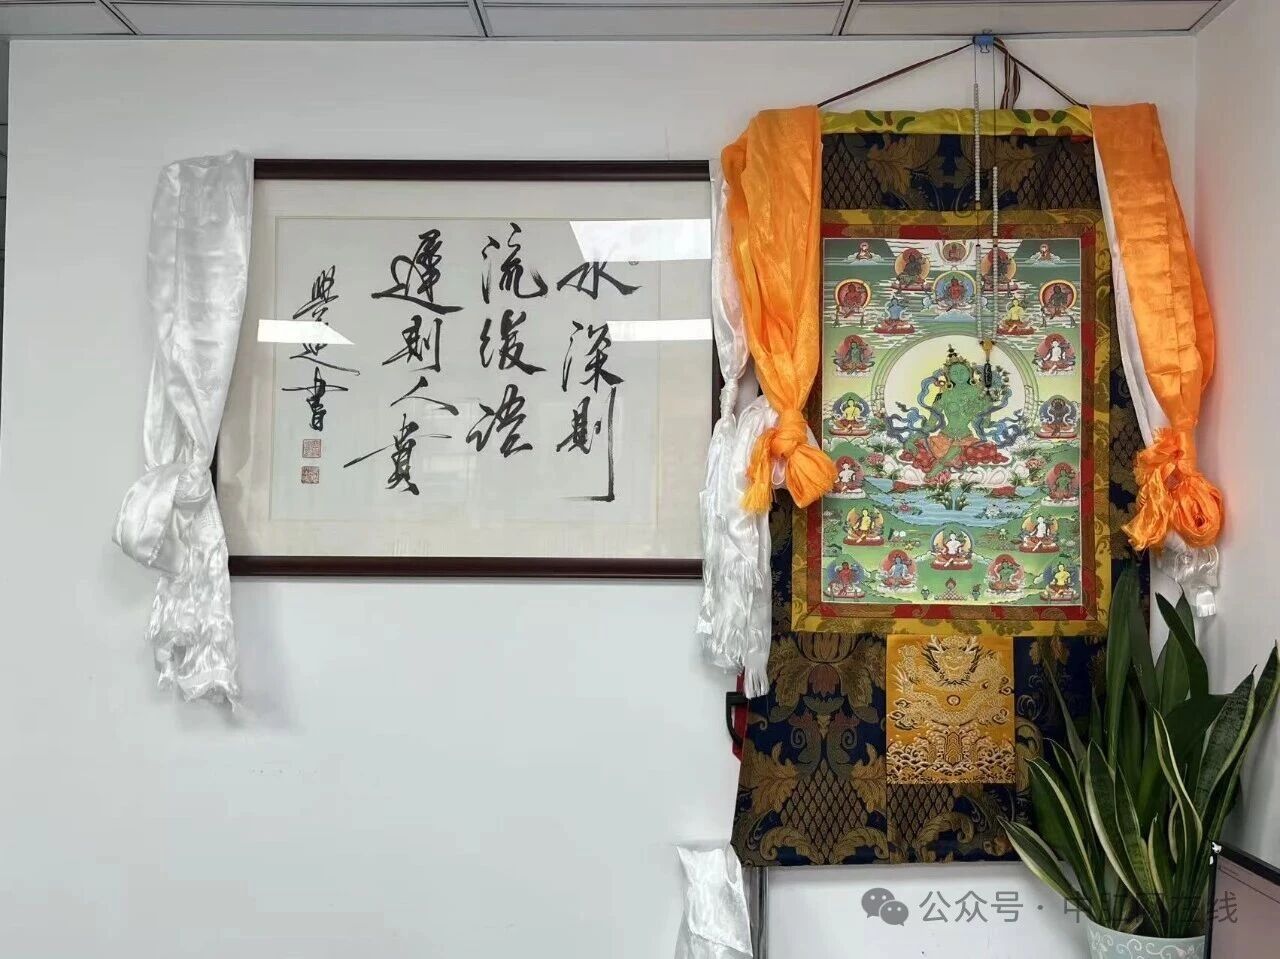 水深則
流緩語
遲則人貴
書
公众号·中
在线